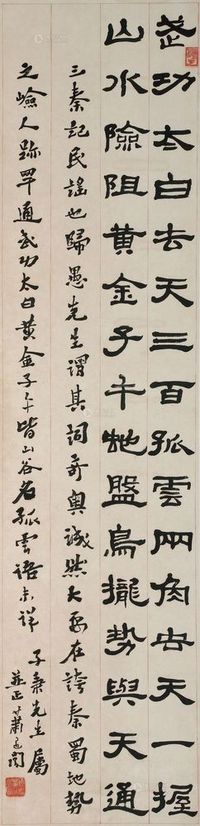 武功太白去天三百孤雲兩角去天一握
山水險阻黃金子午虵盤鳥攏勢與天通
三秦記民謠也歸愚先生謂其詞奇奧誠然大要在誇秦蜀地勢
之嶮人跡罕通武功太白黃金子午皆山谷名孤雲語未詳
子秉先生屬
並正 蕭